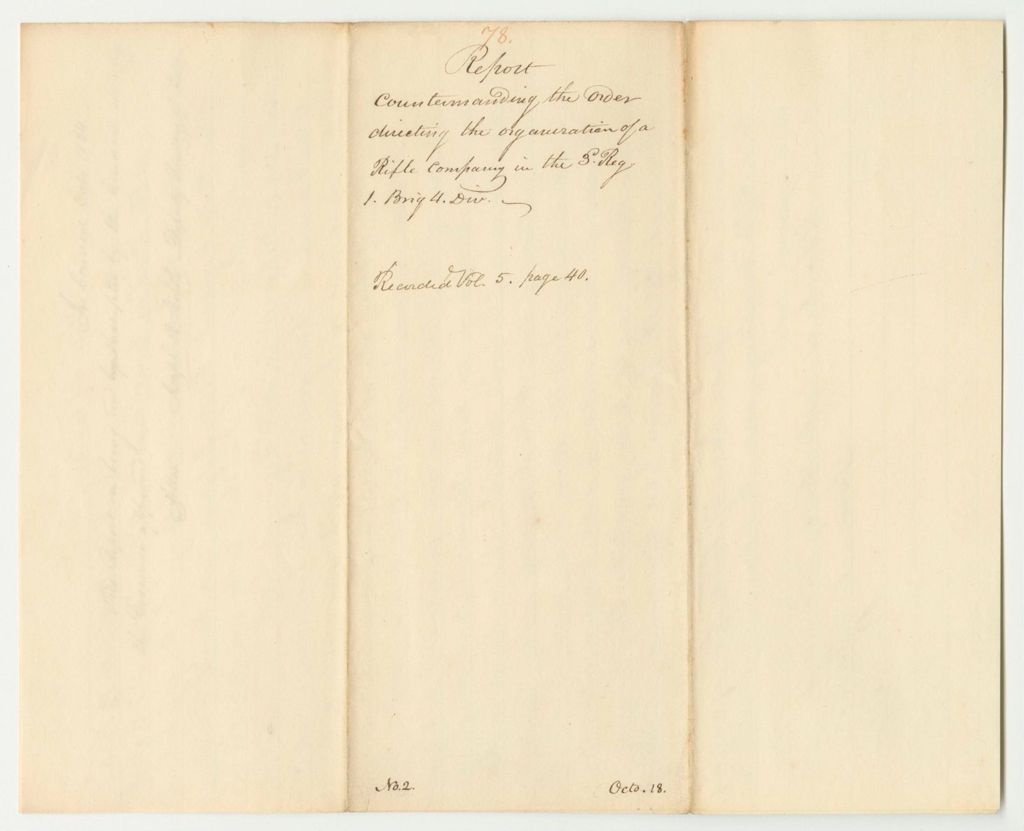 78.
Report
Countermanding the order
directing the organization of a
Rifle Company in the Reg
1. Brig 4. Div.
Recorded Vol. 5. page 40.
No. 2.
Octo. 18.